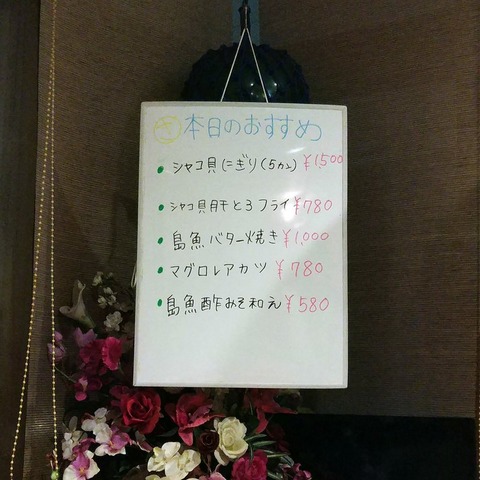 本日のおすすめ
シャコ貝にぎり(5カン) ¥1,500
シャコ貝肝とろフライ ¥780
島魚バター焼き ¥1,000
マグロレアカツ ¥780
島魚酢みそ和え ¥580